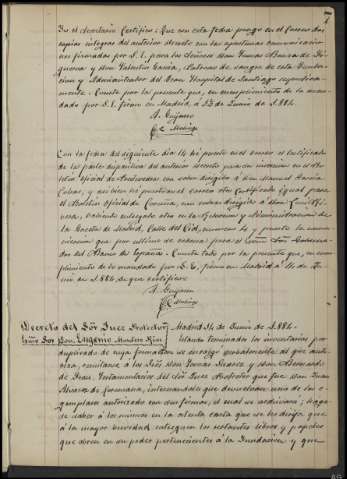 7
Yo el Secretario Certifico: Que con esta fecha pongo en el Correo dos
copias integras del anterior decreto con las oportunas comunicaciones
firmadas por S. E. para los Señores Don
y Don Valentin García, Patronos de sangre de esta Funda-
cion y Administrador del Gran Hospital de Santiago respectiva-
mente. Consta por la presente que, en cumplimiento de lo man-
dado por S. E. firmo en Madrid, a 13 de Junio de 1.884.
A. Guijarro
Con la fecha del siguiente dia 14 hé puesto en el correo el Certificado
de la parte dispositiva del anterior decreto para su insercion en el Bo-
letin oficial de Pontevedra, con sobre dirigido á Don Manuel García
y asi bien hé puesto en el correo otro Certificado igual para
el Boletin Oficial de Coruña, con sobre dirigido á Don
habiendo entregado otro en la Redaccion y Administracion de
la Gaceta de Madrid, Calle del Cid, numero 4, y puesto la comuni-
cacion que por ultimo se ordena para el Excmo Sor Goberna-
dor del Banco de España. Consta todo por la presente que, en cum-
plimiento de lo mandado por S. E. firmo en Madrid á 14 de Ju-
nio de 1.884, de que certifico
A. Guijarro
Decreto del Sór Juez Protector, Madrid 14 de Junio de 1.884.
Excmo Sor Don Eugenio Montero Rios. Estando terminados los inventarios por
duplicado de cuya formacion se encargó generalmente el que auto-
riza, remitanse á los Sres Don
de Frau, Testamentarios del Sór Juez Protector que fué Don Juan
Alvarez de Lorenzana, interesandoles que devuelvan uno de los e-
jemplares autorizado con sus firmas, el cual se archivará; haga-
se saber á los mismos en la atenta carta que se les dirija que
á la mayor brevedad entreguen los restantes libros y papeles
que obren en su poder pertenecientes á la Fundacion y que